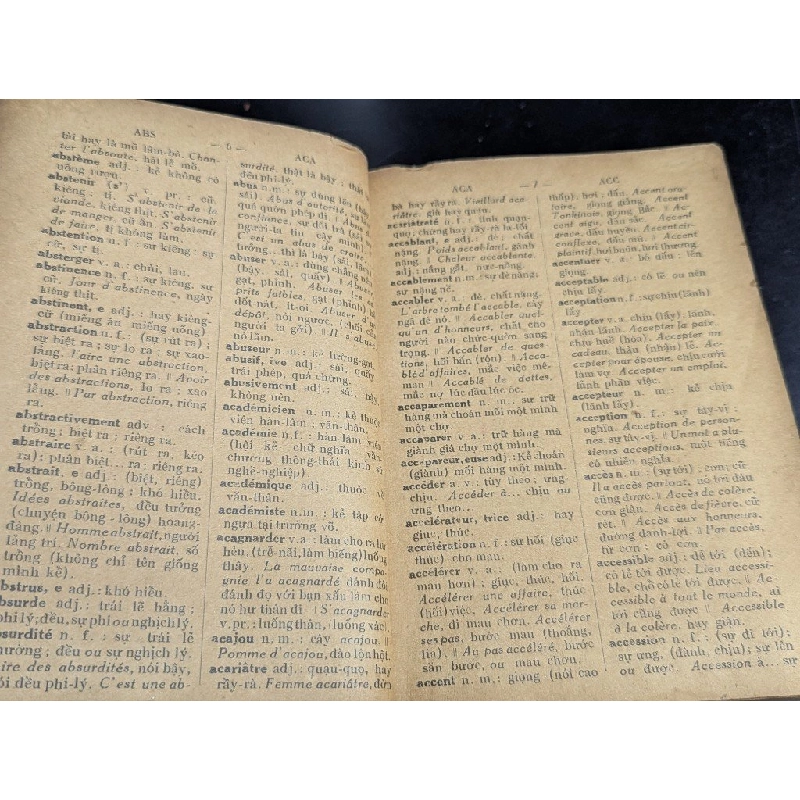 ABS
— 6 —
ACA
tài hay là mõ làm-bô. Chan-
ter l'absoute, hát lễ mồ.
abstème adj. : kẻ không có
uống rượu.
abstenir (s') v. pr. : cữ
kiêng ; tị. S'abstenir de la
viande, kiêng thịt. S'abstenir
de manger, cữ ăn S'abstenir
de faire, tị không làm.
abstention n. f. : sự kiêng ; sự
cữ, sự tị.
absterger v. a. : chùi, lau.
abstinence n. f. : sự kiêng, sự
cữ. Jour d'abstinence, ngày
kiêng thịt.
abstinent, e adj. : hay kiêng-
cữ (miếng ăn miếng uống)
abstraction n. f. : (sự rút ra) ;
sự biệt ra ; sự lo ra ; sự xao-
lãng. Faire une abstraction,
biệt ra ; phân riêng ra. || Avoir
des abstractions, lo ra ; xao
lãng. || Par abstraction, riêng
ra.
abstractivement adv. : cách
trồng ; biệt ra ; riêng ra.
abstraire v. a. : (rút ra, kéo
ra) ; phân biệt... ra ; riêng ra.
abstrait, e adj. : (biệt, riêng)
trồng, bông-lông ; khó hiểu.
Idées abstraites, đều tưởng
(chuyện bông-lông) hoang-
đàng. || Homme abstrait, người
lãng trí. Nombre abstrait, số
trồng (không chỉ tên giống
mình kể).
abstrus, e adj. : khó hiểu.
absurde adj. : trái lẽ hằng ;
phi lý ; đều, sự phi ou nghịch lý.
absurdité n. f. : sự trái lẽ
thường ; đều ou sự nghịch lý.
aire des absurdités, nói bậy,
ói đều phi-lý. C'est une ab-
surdité, thật là bậy ; thật
đều phi-lý.
abus n. m. : sự dùng lỗn
sái). Abus d'autorité, sự
quá quờn phép đi. Abus
confiance, sự dối trá (sái
người-ta tin cậy mình)
C'est un abus de croire...
tưởng... thì là bậy (sái, lỗi
abuser v. a. : dùng chẳng nên
(bậy, sái, quấy) || Abuser
gạt, phỉnh. Abuser les es-
prits faibles, gạt (phỉnh)
dốt nát, ít-oi. Abuser d'
dépôt, nói ngược, (chối củ
người ta gởi) || Il s'abu
abuseur n. m. : kẻ lường-gạt.
abusif, ive adj. : sái, quấy
trái phép, quá chừng.
abusivement adj. : sái, bậy
không nên.
académicien n. m. : kẻ thuộc
viện hàn-lâm ; văn-thân.
académie n. f. : hàn lâm viện
(hội kẻ chữ nghĩa văn
chương thông-thái kinh sử
nghề-nghiệp)
académique adj. : thuộc về
văn-thân.
académiste n. m. : kẻ tập cỡ
ngựa tại trường võ.
acagnarder v. a. : làm cho ra hư
hèn. (trễ nải, làm biếng) luồng
thây. La mauvaise compa-
gnie l'u acagnardé đánh đú
đánh đọ với bọn xấu làm cho
nó hư thân đi || S'acagnarder
v. pr. : luồng thân, luồng xác.
acajou n. m. : cây acajou.
Pomme d'acajou, đào lộn hột.
acariâtre adj. : quau-quọ, hay
rầy-rà. Femme acariâtre, đờn
ACA
— 7 —
ACC
bà hay rầy rà. Vieillard aca-
riâtre, già hay quạu.
acariatreté n. f. : tính quạu-
quọ ; chứng hay rầy rà la lối.
accablant, e adj. : đè ; chất
nặng. Poids accablant, gánh
nặng. || Chaleur accablante,
nắng gắt, nực-nồng.
accablement n. m. : sự đè nặng,
sự nặng nề.
accabler v. a. : đè, chất nặng.
L'arbre tombé l'accable, cây
ngã đè nó. || Accabler quel-
qu'un d'honneurs, chất cho
người nào chức quờn sang
trọng. || Accabler de ques-
tions, hỏi hãn (rộn). || Acca-
blé d'affaires, mắc việc mê-
man || Accablé de dettes,
mắc nợ lúc đầu lúc óc.
accaparement n. m. : sự trữ
hàng mà choán mối một mình
một chợ
accaparer v. a. : trữ hàng mà
giành giá chợ một mình.
accapareur, euse adj. : kẻ choán
(giành) mối hàng một mình.
accéder a. v. : tùy theo ; ưng-
chịu. Accéder à... chịu ou
ưng theo...
accélérateur, trice adj. : hay
giục, thúc.
accélération n. f. : sự hối (giục
thúc) cho mau.
accélérer v. a. : (làm cho ra
mau hơn) ; giục, thúc, hối.
Accélérer une affaire, thúc
(hối) việc, Accélérer sa mar-
che, đi mau chơn. Accélérer
ses pas, bước mau (thoắng,
lìn). || Au pas accéléré, bước
sấn bước, ou mau chơn.
accent n. m. : giọng (nói cao
thấp), hơi ; dấu. Accent ora-
toire, giọng giảng. Accent
Tonkinois, giọng Bắc. || Ac-
cent aigu, dấu sắc. Accent
grave, dấu huyền. Accent cir-
conflexe, dấu mũ. || Accent
plaintif, hơi buồn, hơi thương.
accentuer v. a. : bỏ dấu ; lên
giọng.
acceptable adj. : có lẽ ou nên
chịu lấy
acceptation n. f. : sự chịu (lãnh)
lấy
accepter v. a. chịu (lấy), lãnh,
nhận lãnh. Accepter la paix,
chịu huề (hòa). Accepter un
cadeau, thâu (nhận) lễ. Ac-
cepter pour épouse, chịu cưới
làm vợ Accepter un emploi,
lãnh phần việc.
accepteur n. m. : kẻ chịu
(lãnh lấy).
acception n. f. : sự tây-vị ;
nghĩa. Acception de person-
nes, sự tây-vị. || Un mot a plu-
sieurs acceptions, một tiếng
có nhiều nghĩa.
accès n. m. : (sự tới) ; cơn, cữ
Il a accès partout, nó tới đâu
cũng được. || Accès de colère,
cơn giận. Accès de fièvre, cữ
rét. || Accès aux honneurs,
đường danh-lợi. || Par accès,
từ cơn ; có cơn
accessible adj. : dễ tới (đến) ;
có lẽ tới được. Lieu accessi-
ble, chỗ có lẽ tới được. || Ac-
cessible à tout le monde, ai
tới cũng được || Accessible
à la colère, hay giận.
accession n. f. : (sự đi tới) ;
sự ưng, (đành, chịu) ; sự lên
ou được. Accession à... sự